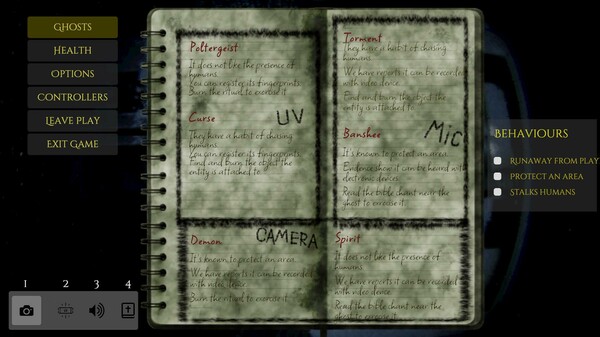 GHOSTS
HEALTH
OPTIONS
CONTROLLERS
LEAVE PLAY
EXIT GAME
1 2 3 4
Poltergeist
It does not like the presence of
humans.
You can register its fingerprints
Burn the ritual to exorcise it
Curse
UV
They have a habit of chasing
humans.
You can register its fingerprints
Find and burn the object the
entity is attached to.
Demon
CAMERA
It's known to protect an area.
We have reports it can be recorded
with video device.
Burn the ritual to exorcise it
Torment
They have a habit of chasing
humans.
We have reports it can be recorded
with video device.
Find and burn the object the
entity is attached to.
Banshee
Mic
It's known to protect an area.
Evidence show it can be heard with
electronic devices.
Read the bible chant near the
ghost to exorcise it.
Spirit
It does not like the presence of
humans.
We have reports it can be recorded
with video device.
Read the bible chant near the
ghost to exorcise it.
BEHAVIOURS
RUNAWAY FROM PLAY
PROTECT AN AREA
STALKS HUMANS